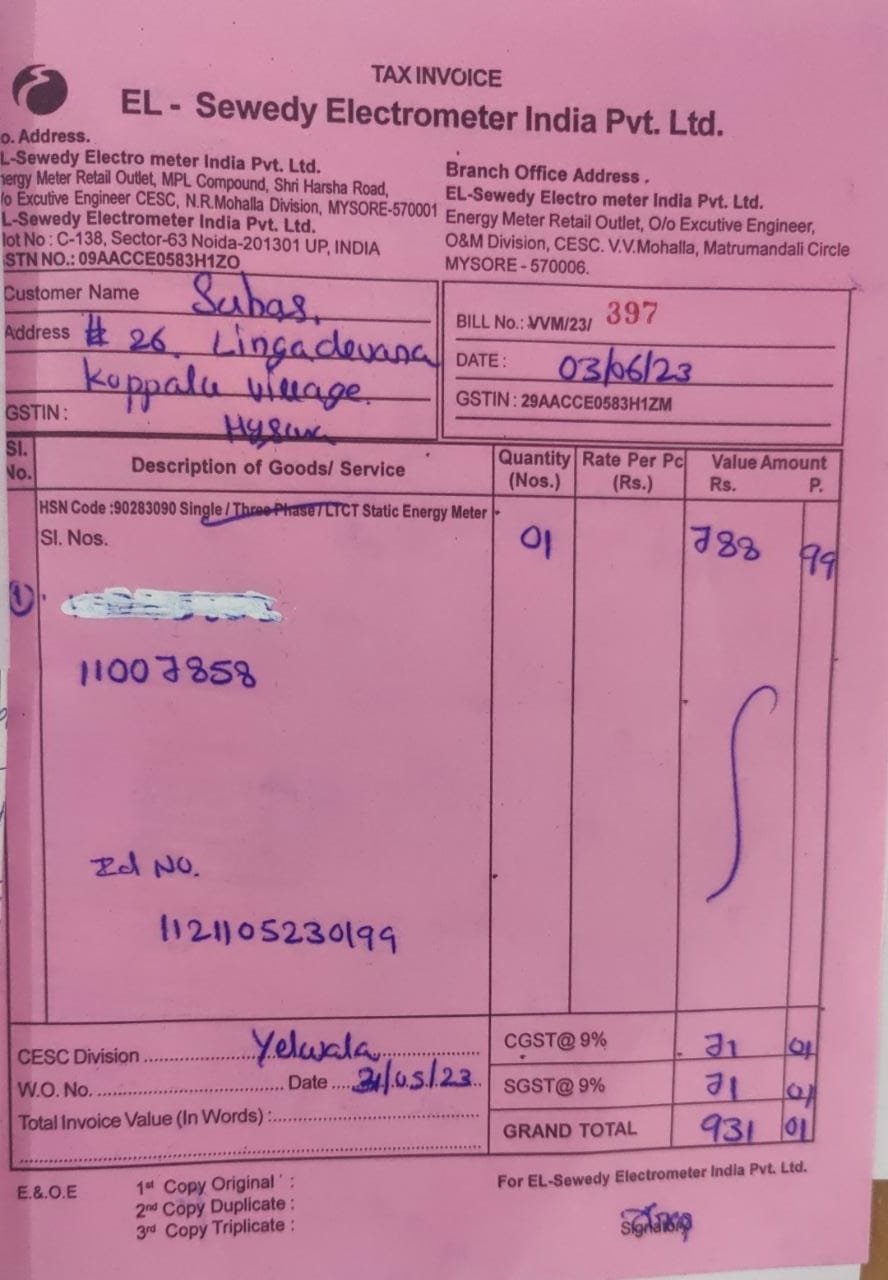 TAX INVOICE
EL - Sewedy Electrometer India Pvt. Ltd.
o. Address.
L-Sewedy Electro meter India Pvt. Ltd.
nergy Meter Retail Outlet, MPL Compound, Shri Harsha Road,
/o Excutive Engineer CESC, N.R.Mohalla Division, MYSORE-570001
L-Sewedy Electrometer India Pvt. Ltd.
lot No : C-138, Sector-63 Noida-201301 UP, INDIA
STN NO.: 09AACCE0583H1ZO
Branch Office Address .
EL-Sewedy Electro meter India Pvt. Ltd.
Energy Meter Retail Outlet, O/o Excutive Engineer,
O&M Division, CESC. V.V.Mohalla, Matrumandali Circle
MYSORE - 570006.
Customer Name Subas.
Address # 26. Lingadevara
Koppalu village.
GSTIN :
Mysuru
BILL No.: VVM/23/ 397
DATE : 03/06/23
GSTIN : 29AACCE0583H1ZM
Sl. No. Description of Goods/ Service Quantity (Nos.) Rate Per Pc (Rs.) Value Amount Rs. P.
HSN Code :90283090 Single / Three Phase / LTCT Static Energy Meter
Sl. Nos. 01 788 99
1
11007858
Id NO.
1121105230199
CESC Division Yelwala
W.O. No. Date 31/05/23
Total Invoice Value (In Words) :
CGST@ 9% 71 01
SGST@ 9% 71 01
GRAND TOTAL 931 01
E.&.O.E
1st Copy Original :
2nd Copy Duplicate :
3rd Copy Triplicate :
For EL-Sewedy Electrometer India Pvt. Ltd.
Signatory